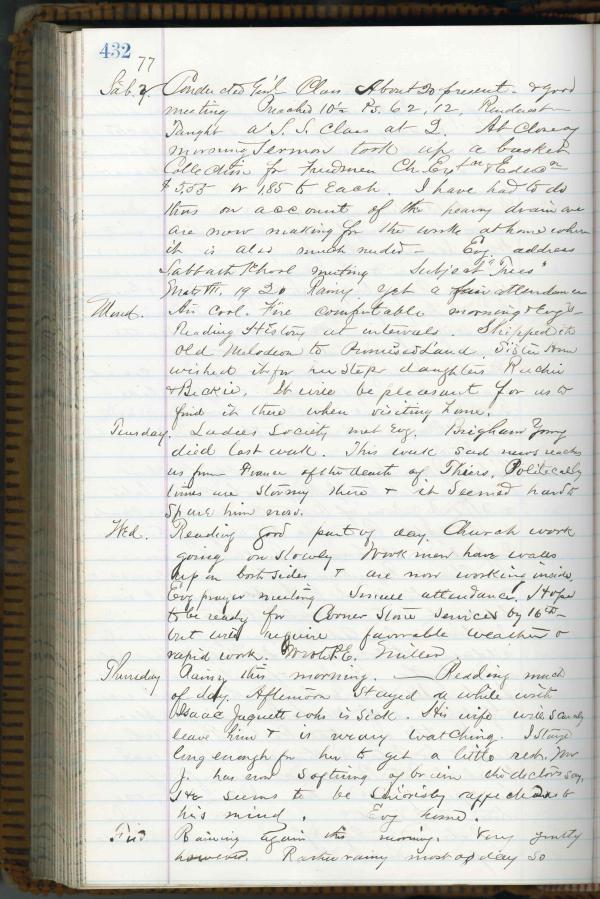 432
77
Sab. 9. Conducted Girl Class About 30 present - & good
meeting Preached 10½ Ps. 62, 12,
Taught a S. S. Class at 2. At Close of
morning Sermon took up a basket
Collection for Freedmen Ch. &
$5.55 or 1.85 to Each. I have had to do
this on account of the heavy drain we
are now making for the work at home where
it is also much needed - Evg. address
Sabbath School meeting Subject "Trees"
Matt VII, 19 20 Rainy yet a fair attendance
Mond. Air Cool. Fire comfortable morning & Evg's -
Reading History at intervals. Shipped the
old Melodeon to Promised Land. Sister Ann
wished it for her step daughters Ruchie
& Beckie. It will be pleasant for us to
find it there when visiting home.
Tuesday. Ladies Society met Evg. Brigham Young
died last week. This week sad news reaches
us from France of the death of Thiers. Politically
times are stormy there & it seemed hard to
spare him now.
Wed. Reading good part of day. Church work
going on slowly Work men have walls
up on both sides & are now working inside.
Evg prayer meeting attendance. I hope
to be ready for Corner Stone services by 16th -
but will require favorable weather &
rapid work. Wrote Miller
Thursday Rainy this morning. — Reading much
of day. Afternoon Stayed a while with
Isaac Jaquett who is Sick. His wife will scarcely
leave him & is weary watching. I stayed
long enough for her to get a little rest. Mr
J. has now softning of brain the doctors say,
He seems to be seriously affected as to
his mind. Evg home.
Frid Raining again this morning. Very gently
however. Rather rainy most of day so